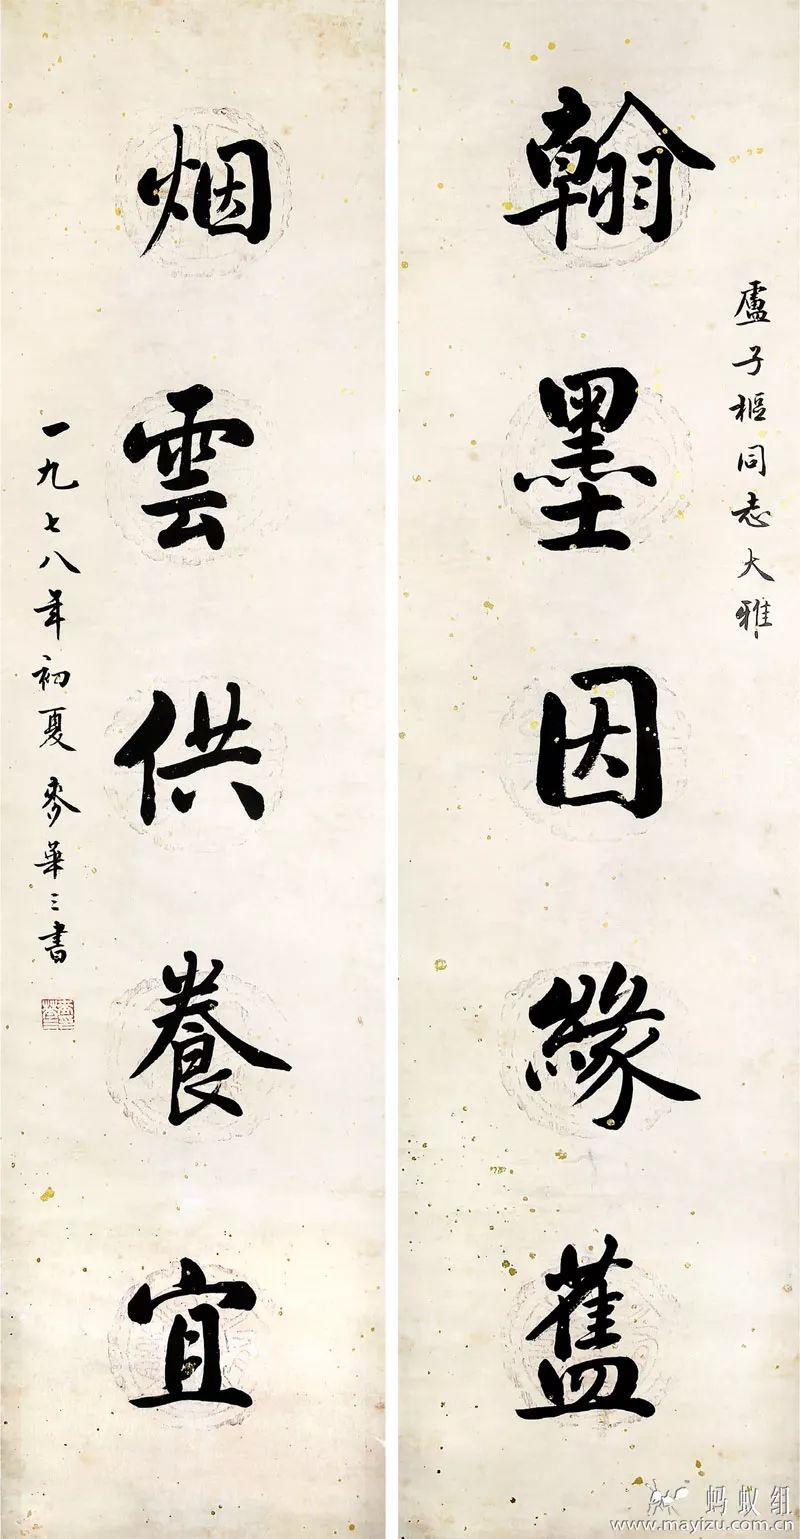 盧子樞同志大雅
翰墨因緣舊
烟雲供養宜
一九七八年初夏麥華三書
蚂蚁组
www.mayizu.com.cn